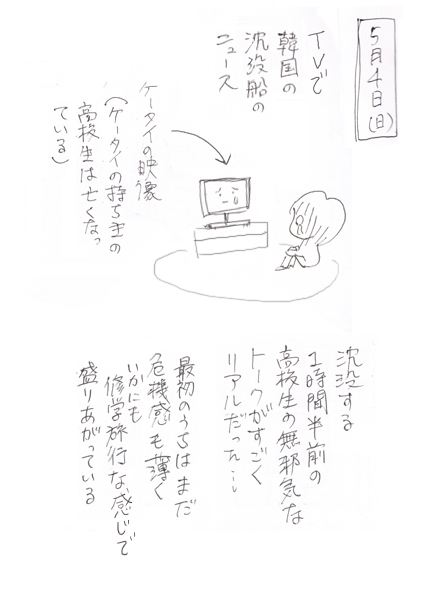 5月4日(日)
TVで
韓国の
沈没船の
ニュース
ケータイの映像
(ケータイの持ち主の
高校生は亡くなっ
ている)
沈没する
1時間半前の
高校生の無邪気な
トークがすごく
リアルだった…
最初のうちはまだ
危機感も薄く
いかにも
修学旅行な感じで
盛りあがっている